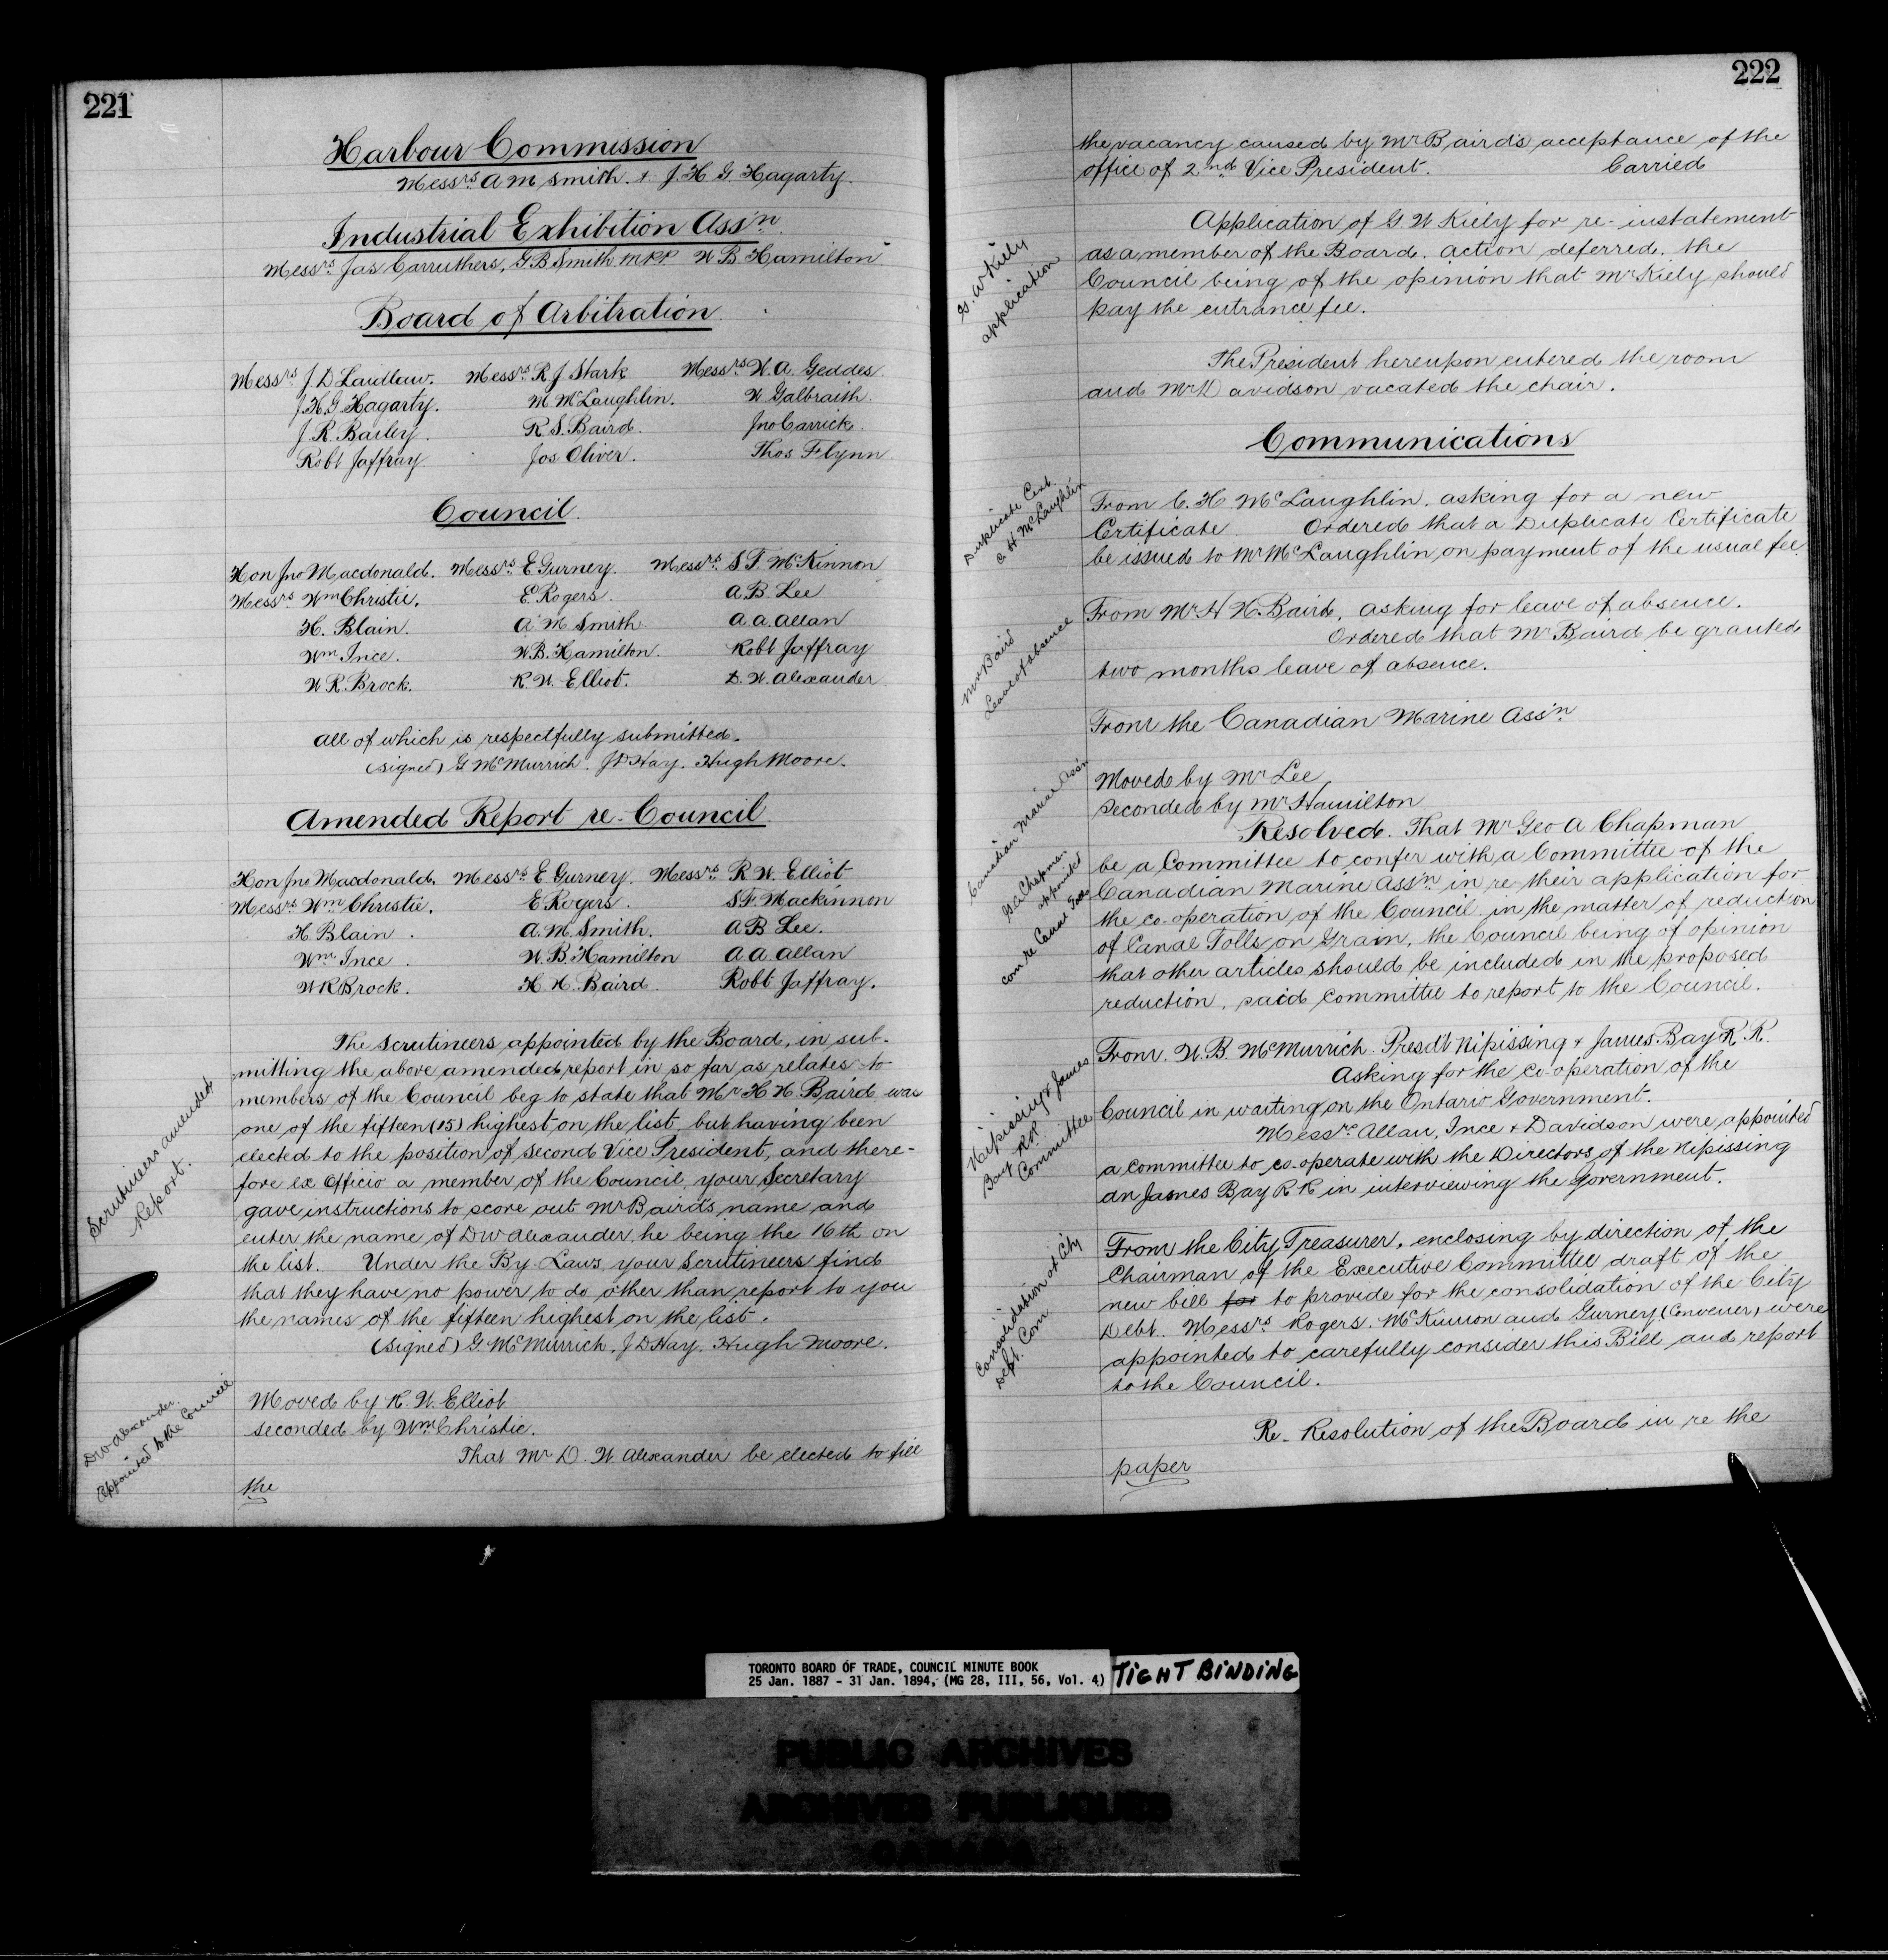 221
Harbour Commission
Messrs A M Smith. + J. H. G. Hagarty.
Industrial Exhibition Ass'n.
Messrs Jas Carruthers, G B Smith MPP W B Hamilton
Board of Arbitration
Messrs J. D Laidlaw. Messrs R J Stark Messrs W. A. Geddes.
J. H. G Hagarty. M. McLaughlin. W. Galbraith.
J. R. Bailey. R. S. Baird. Jno Carrick.
Robt Jaffray. Jos Oliver. Thos. Flynn
Council.
Hon Jno Macdonald. Messrs E Gurney. Messrs S F. McKinnon
Messrs Wm Christie. E. Rogers. A. B. Lee
H. Blain. A. M Smith. A a. Allan
Wm Ince. W. B. Hamilton. Robt Jaffray
W R. Brock. R. W. Elliot. D. W. Alexander
All of which is respectfully submitted.
(signed) G McMurrich. J D Hay. Hugh Moore.
Amended Report re-Council.
Hon Jno Macdonald. Messrs E Gurney. Messrs R W. Elliot
Messrs Wm Christie. E Rogers. S F. Mackinnon
H. Blain. A. M. Smith. A B Lee.
Wm Ince. W. B. Hamilton A A. Allan
W R Brock. H H. Baird. Robt Jaffray.
Scrutineers amended
Report.
The Scrutineers appointed by the Board, in sub-
mitting the above amended report in so far as relates to
members of the Council beg to state that Mr H H Baird was
one of the fifteen (15) highest on the list, but having been
elected to the position of second Vice President, and there-
fore ex Officio a member of the Council, your Secretary
gave instructions to score out Mr Bairds name and
enter the name of D W Alexander, he being the 16th on
the list. Under the By-Laws your Scrutineers find
that they have no power to do other than report to you
the names of the fifteen highest on the list.
(signed) G. McMurrich, J D Hay, Hugh Moore.
D W Alexander.
Appointed to the Council
Moved by R. W. Elliot
seconded by Wm Christie.
That Mr D. W Alexander be elected to fill
the
222
the vacancy caused by Mr Bairds acceptance of the
office of 2nd Vice President. Carried
G. W Kiely
application
Application of G. W Kiely for re-instatement
as a member of the Board. Action deferred. the
Council being of the opinion that Mr Kiely should
pay the entrance fee.
The President hereupon entered the room
and Mr Davidson vacated the chair.
Communications
Duplicate Cert.
C H McLaughlin
From C. H McLaughlin, asking for a new
Certificate Ordered that a Duplicate Certificate
be issued to Mr McLaughlin, on payment of the usual fee.
Mr Baird
Leave of absence
From Mr H H. Baird, asking for leave of absence.
Ordered that Mr Baird be granted
two months leave of absence.
From the Canadian Marine Ass'n
Canadian Marine Ass'n
G. A. Chapman
appointed
com re Canal Tolls
Moved by Mr Lee
seconded by Mr Hamilton
Resolved. That Mr Geo A Chapman
be a Committee to confer with a Committee of the
Canadian Marine Ass'n in re their application for
the co-operation of the Council in the matter of reduction
of Canal Tolls on Grain, the Council being of opinion
that other articles should be included in the proposed
reduction, said committee to report to the Council.
Nipissing & James
Bay RR
Committee
From W. B. McMurrich. Presd't Nipissing & James Bay R R.
Asking for the co-operation of the
Council in waiting on the Ontario Government.
Messrs Allan, Ince & Davidson were appointed
a committee to co-operate with the Directors of the Nipissing
an James Bay R R in interviewing the Government.
Consolidation of City
Debt. Com
From the City Treasurer, enclosing by direction of the
Chairman of the Executive Committee draft of the
new bill for to provide for the consolidation of the City
Debt. Messrs Rogers. McKinnon and Gurney (Convener) were
appointed to carefully consider this Bill and report
to the Council.
Re-Resolution of the Board in re the
paper
TORONTO BOARD OF TRADE, COUNCIL MINUTE BOOK
25 Jan. 1887 - 31 Jan. 1894, (MG 28, III, 56, Vol. 4)
TIGHT BINDING
PUBLIC ARCHIVES
ARCHIVES PUBLIQUES
CANADA